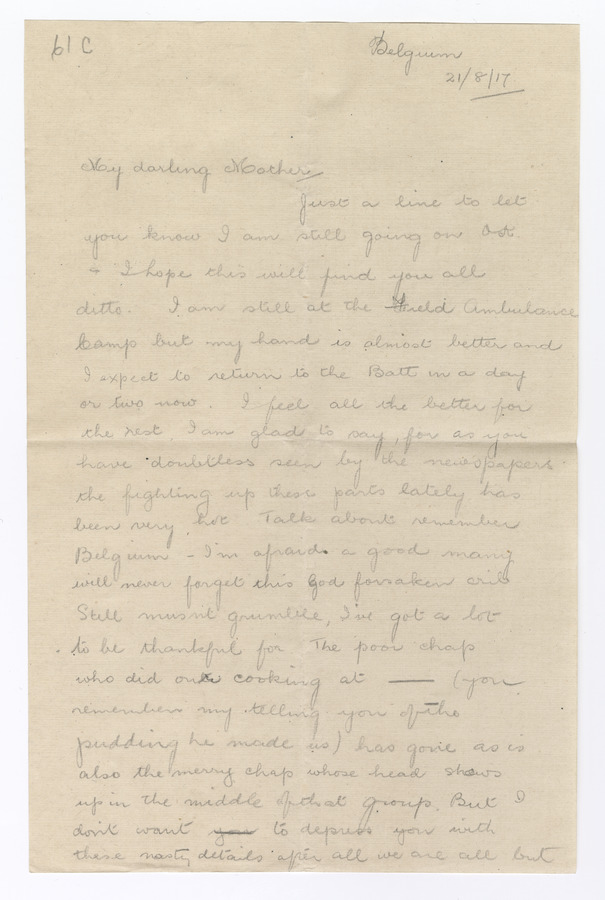 61 C
Belgium
21/8/17
My darling Mother,
Just a line to let
you know I am still going on
& I hope this will find you all
ditto. I am still at the Field Ambulance
Camp but my hand is almost better and
I expect to return to the Batt in a day
or two now. I feel all the better for
the rest, I am glad to say, for as you
have doubtless seen by the newspapers
the fighting up these parts lately has
been very hot Talk about remember
Belgium - I'm afraid a good many
will never forget this God forsaken crib
Still musn't grumble, I've got a lot
to be thankful for The poor chap
who did our cooking at —— (you
remember my telling you of the
pudding he made us) has gone as is
also the merry chap whose head shows
up in the middle of that group. But I
don't want you to depress you with
these nasty details after all we are all but